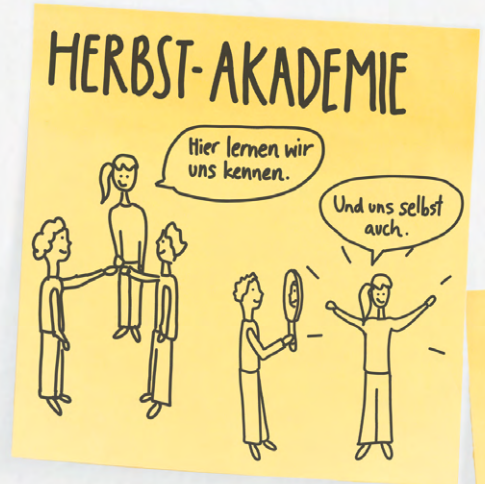 HERBST-AKADEMIE
Hier lernen wir
uns kennen.
Und uns selbst
auch.